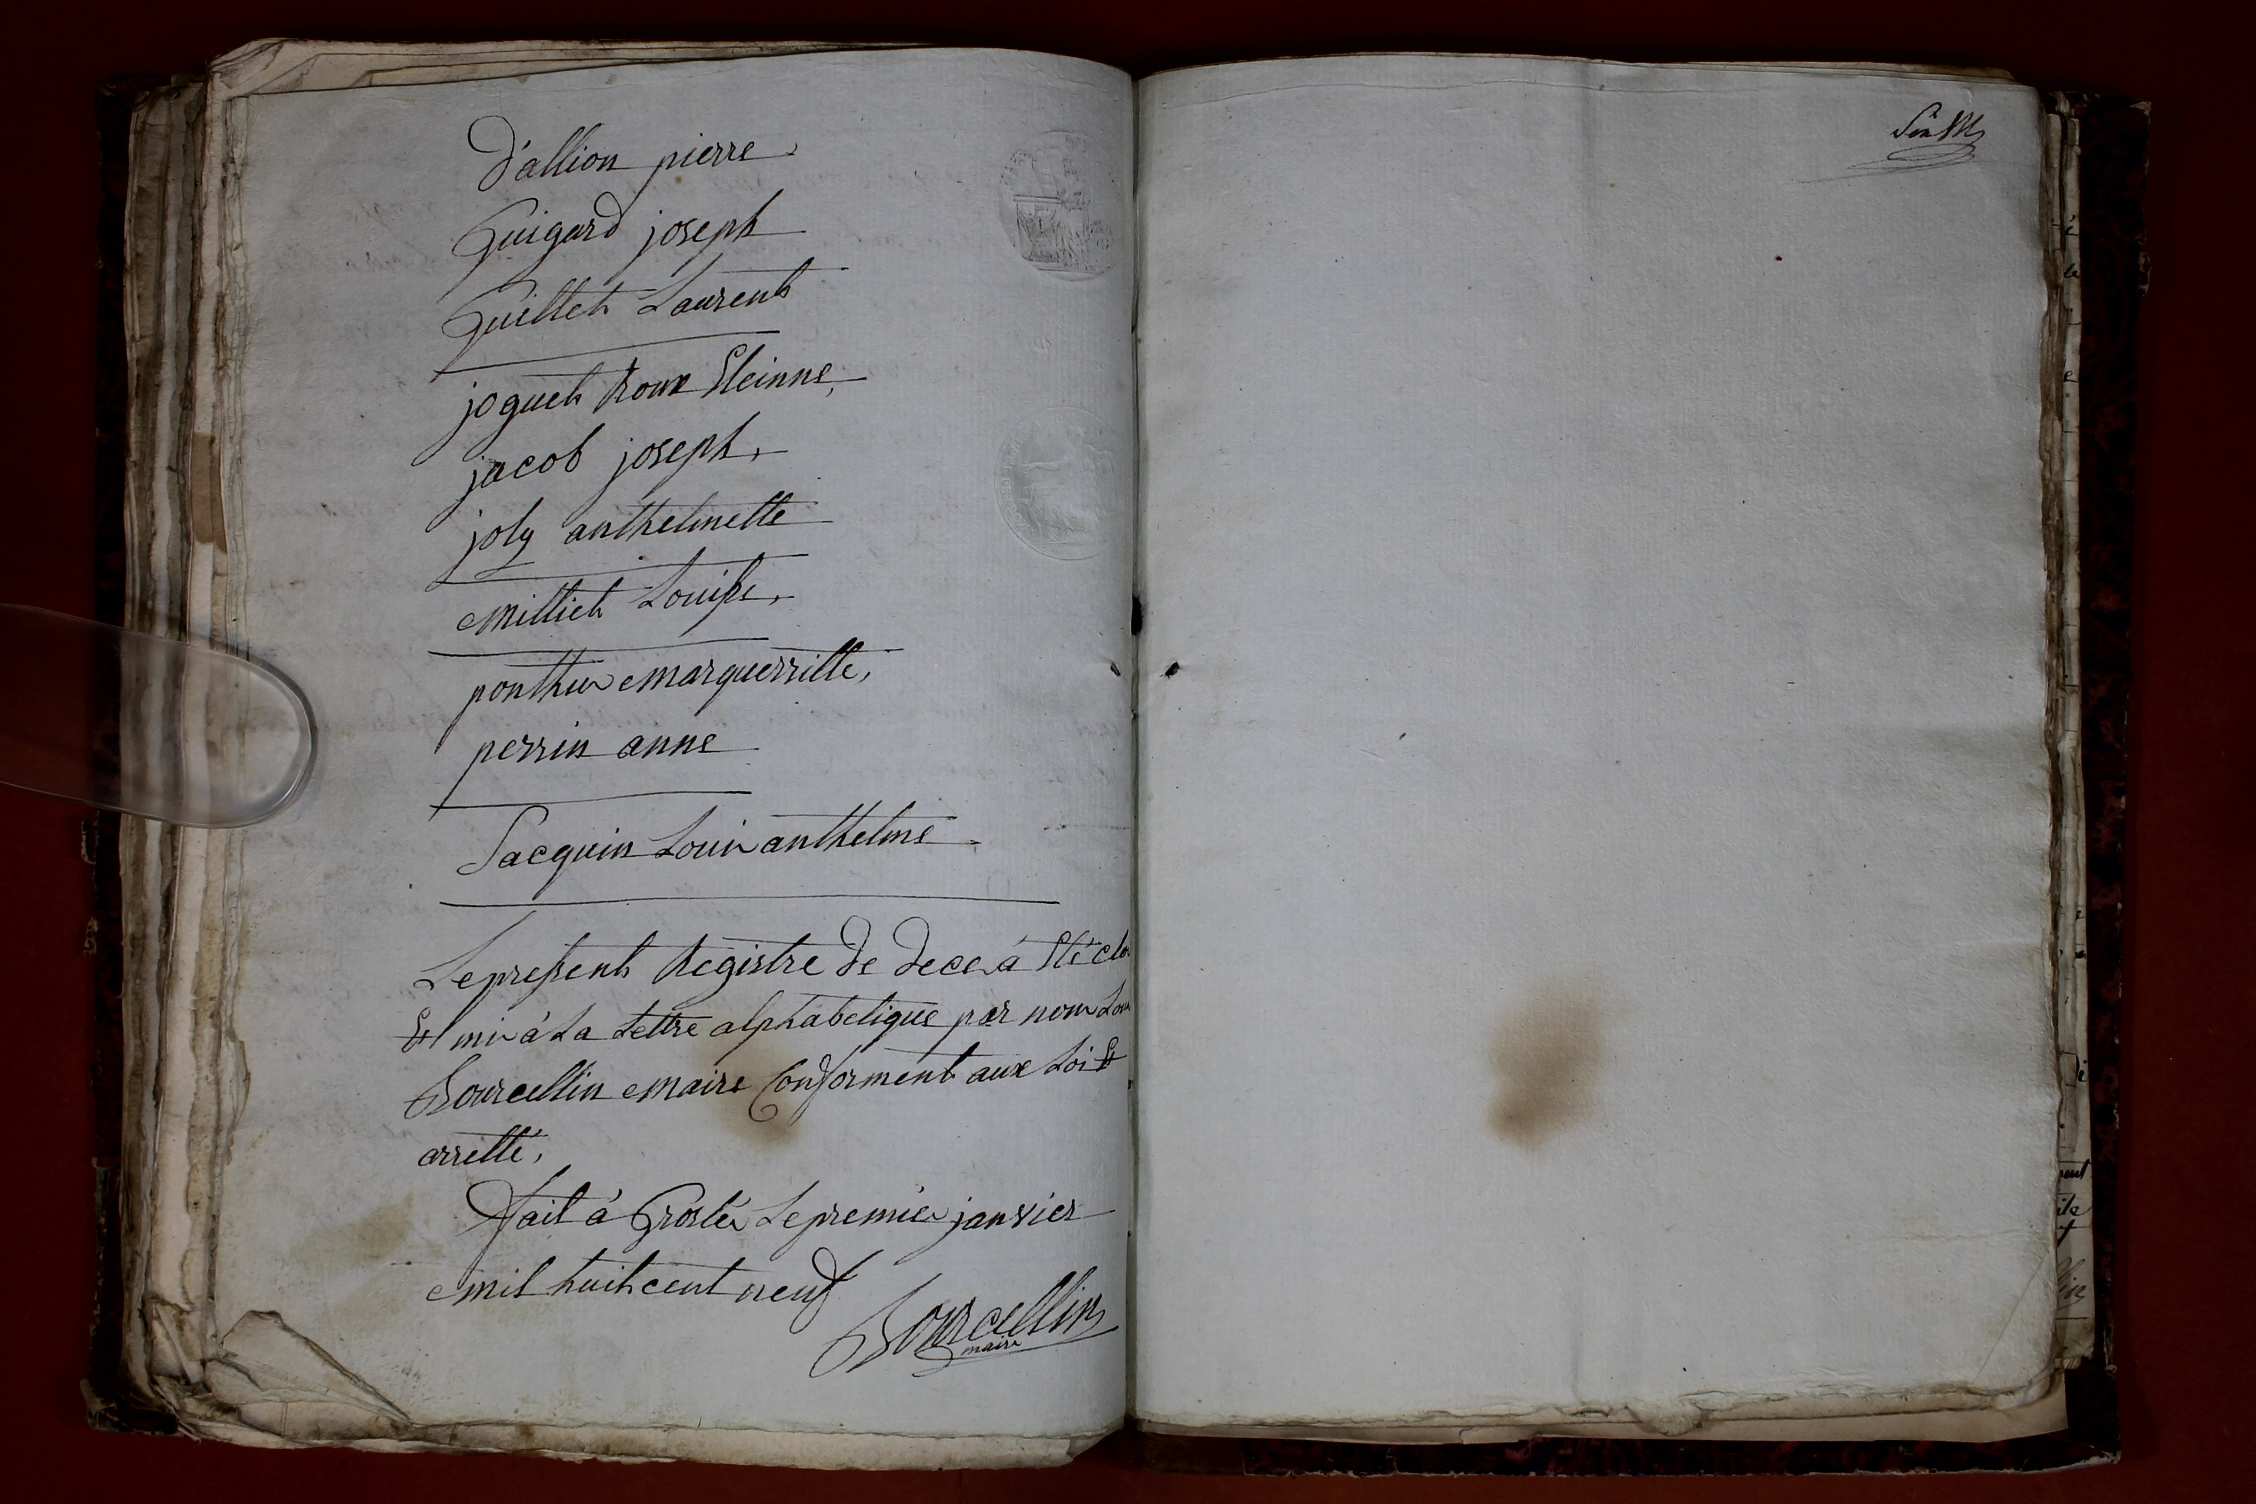 D'allion pierre
Guigard joseph
Guillet Laurent
joguet Roux Eteinne,
jacob joseph,
joly anthelmette
Milliet Louise,
ponthu Marguerritte,
perrin anne
Sacquin Louis anthelme
Le present Registre de deces á Eté clos
Et mis á La Lettre alphabetique par nous Louis
Bourcellin Maire Conforment aux Loi Et
arretté,
Fait á Groslée Le premier janvier
Mil huit cent neuf
Bourcellin
maire